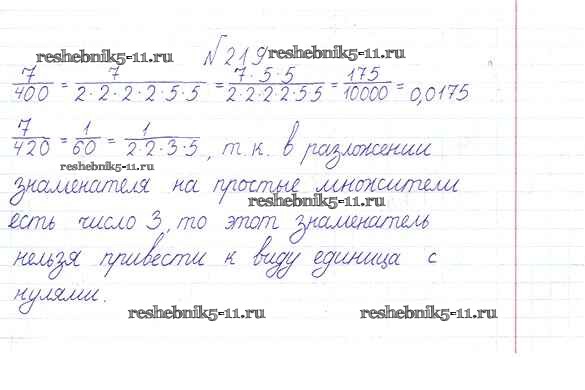 reshebnik5-11.ru №219 reshebnik5-11.ru
7/400 = 7/(2·2·2·2·5·5) = (7·5·5)/(2·2·2·2·5·5) = 175/10000 = 0,0175
7/420 = 1/60 = 1/(2·2·3·5), т.к. в разложении
reshebnik5-11.ru
знаменателя на простые множители
reshebnik5-11.ru
есть число 3, то этот знаменатель
нельзя привести к виду единица с
нулями.
reshebnik5-11.ru reshebnik5-11.ru